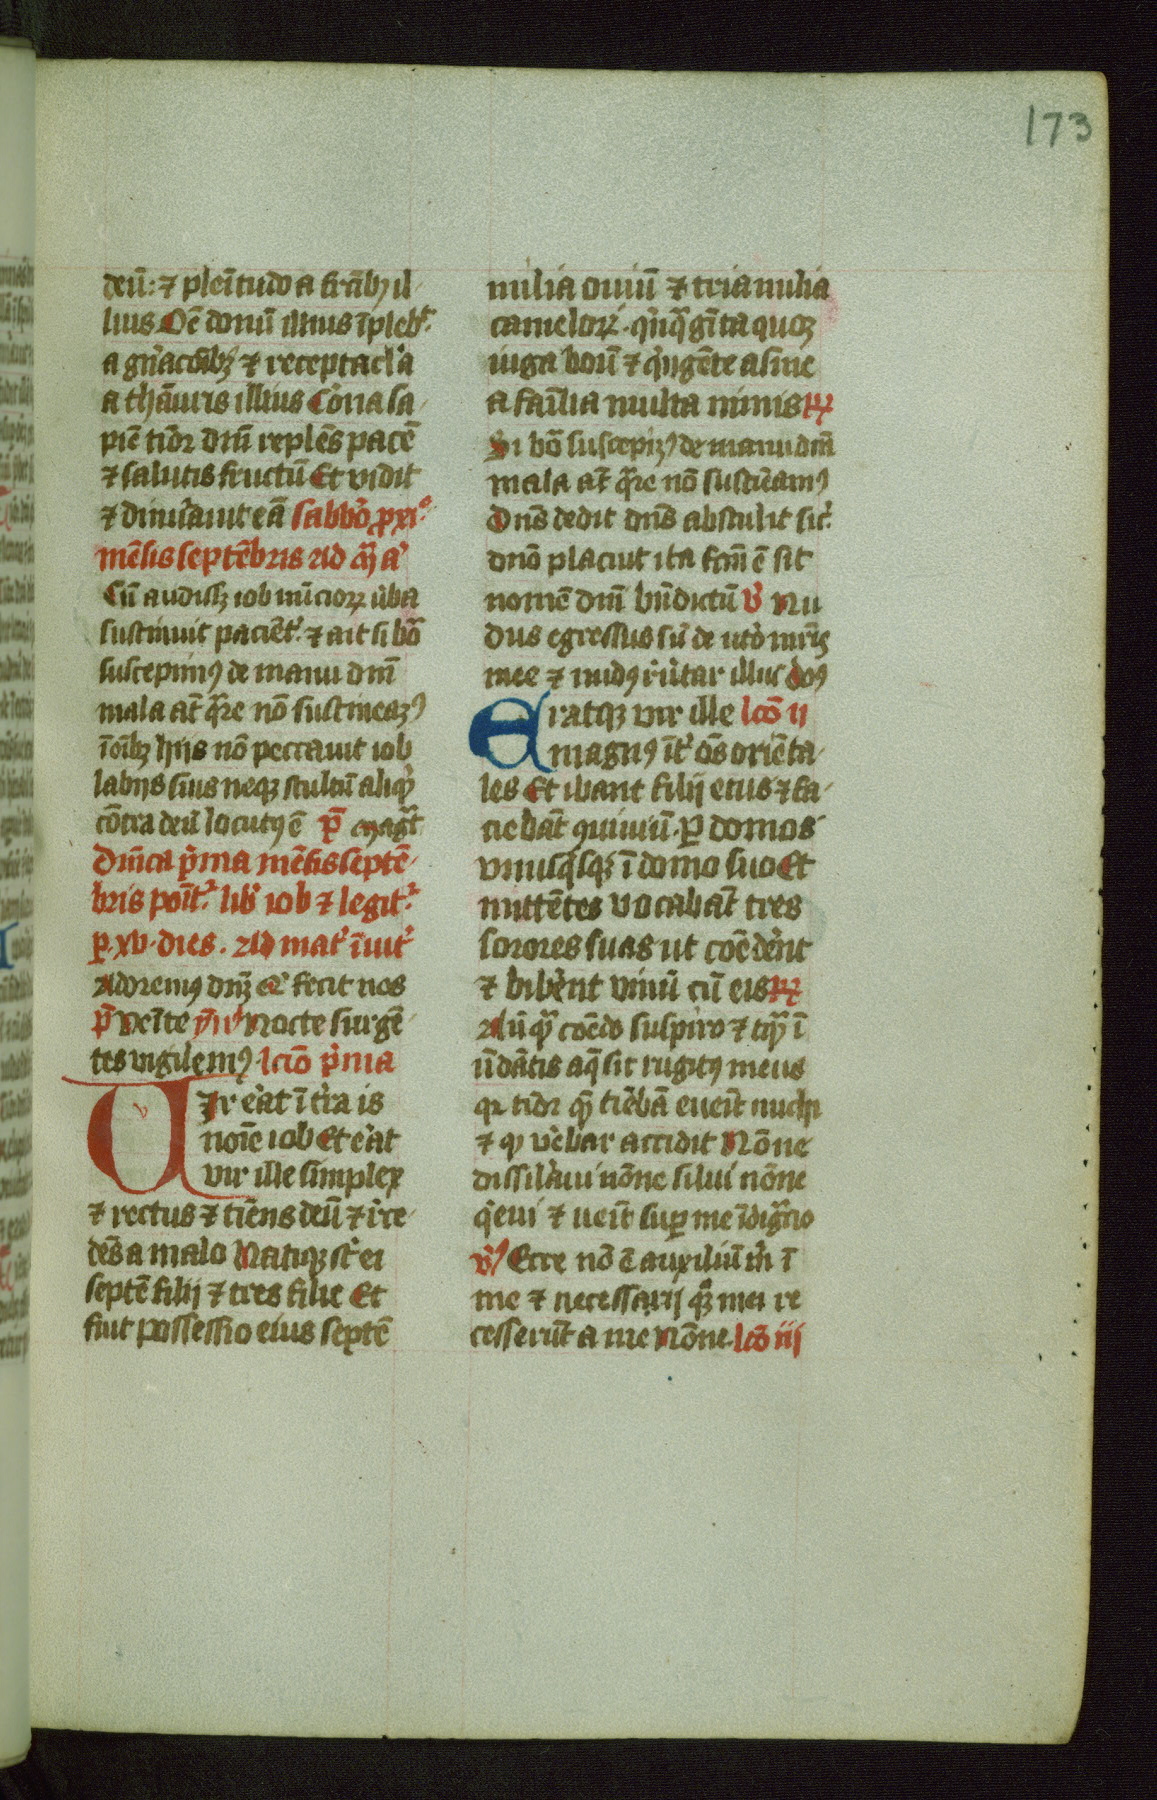 173
deū: ⁊ plēitudo a fructibꝫ il-
lius Oēm domū illius īplebit
a gn̄acōibꝫ ⁊ receptacl'a
a thāuris illius Corona sa-
piē timor dn̄i replēs pacē
⁊ salutis fructū Et vidit
⁊ dinūauit eā Sabbō prox̄i
mēsis septēbris ad mag̅ a'
Cū audissꝫ iob nūcioꝝ ūba
sustinuit paciēt' ⁊ ait si bōa
suscepimꝰ de manu dn̄i
mala at̄ qͣre nō sustineamꝰ
ī oīibꝫ hijs nō peccauit iob
labijs suis neqꝫ stultū aliqͥd
cōtra deū locutꝰ ē p̄ɜ magͣt
Dn̄ica pͥma mēsis septē-
bris poīt' lib' iob ⁊ legit'
p xv dies. Ad mat' īuit'
Adoremꝰ dn̄ꝫ qͥ fecit nos
p̄ɜ Veīte ymꝰ Nocte surgē
tes vigilemꝰ lcīo pͥma
Vir erat ī terra is
noīe iob Et erat
vir ille simplex
⁊ rectus ⁊ timēs deū ⁊ rece-
dēs a malo Natiqꝫ st̄ ei
septē filij ⁊ tres filie Et
fuit possessio eius septē
milia ouiū ⁊ tria milia
cameloꝝ. qͥnqͣgīta quoqꝫ
iuga boū ⁊ qͥngēte asine
a faīlia multa nimis ℟
Si bōa suscepimꝰ de manu dn̄i
mala at̄ qͣre nō sustineamꝰ
Dn̄s dedit dn̄s abstulit sic'
dn̄o placuit ita fcm̄ ē sit
nomē dn̄i bn̄dictū ℣ Nu
dus egressus sū de ut'o mr̄is
mee ⁊ nudꝰ reūtar illuc dn̄s
Eratqꝫ vir ille lcō ij
magnꝰ īt' oēs oriēta-
les Et ibant filij eius ⁊ fa-
ciebāt ꝯuiuiū p domos
vniusqͥsqꝫ ī domo suo Et
mittētes vocabāt tres
sorores suas ut coēderēt
⁊ biberēt vinū cū eis ℟
Anteqͣ coēdo suspiro ⁊ tqͣ ī
ūdātis aq̄ sic rugitꝰ meus
qꝛ timor quē timebā eueīt michi
⁊ qd' verebar accidit Nōne
dissimulaui nōne silui nōne
qͥeui ⁊ ueīt sup me īdignacio
℣ Ecce nō ē auxiliū m̄ ī
me ⁊ necessarij qͦqꝫ mei re
cesserūt a me Nōne lcō iij